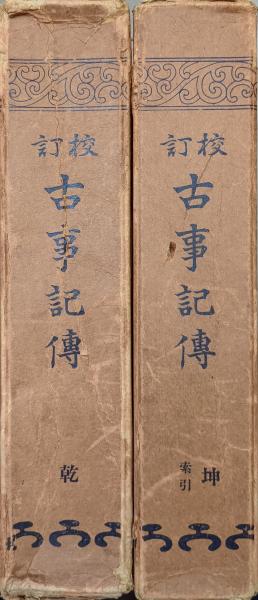 校訂
古事記傳
乾
校訂
古事記傳
坤
索引